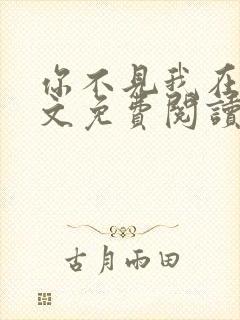 你不見我在
文免費閱讀
古月雨田